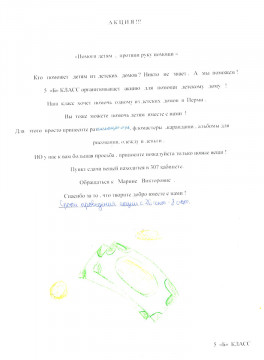 А К Ц И Я !!!
«Помоги детям , протяни руку помощи »
Кто поможет детям из детских домов ? Никто не знает . А мы поможем !
5 «Б» КЛАСС организовывает акцию для помощи детскому дому !
Наш класс хочет помочь одному из детских домов в Перми .
Вы тоже можете помочь детям вместе с нами !
Для этого просто принесите фломастеры , карандаши , альбомы для
рисования, одежду и деньги .
НО у нас к вам большая просьба , принесите пожалуйста только новые вещи !
Пункт сдачи вещей находится в 307 кабинете .
Обращаться к Марине Викторовне .
Спасибо за то , что творите добро вместе с нами !
Сроки проведения акции с 26 окт -
5 «Б» КЛАСС